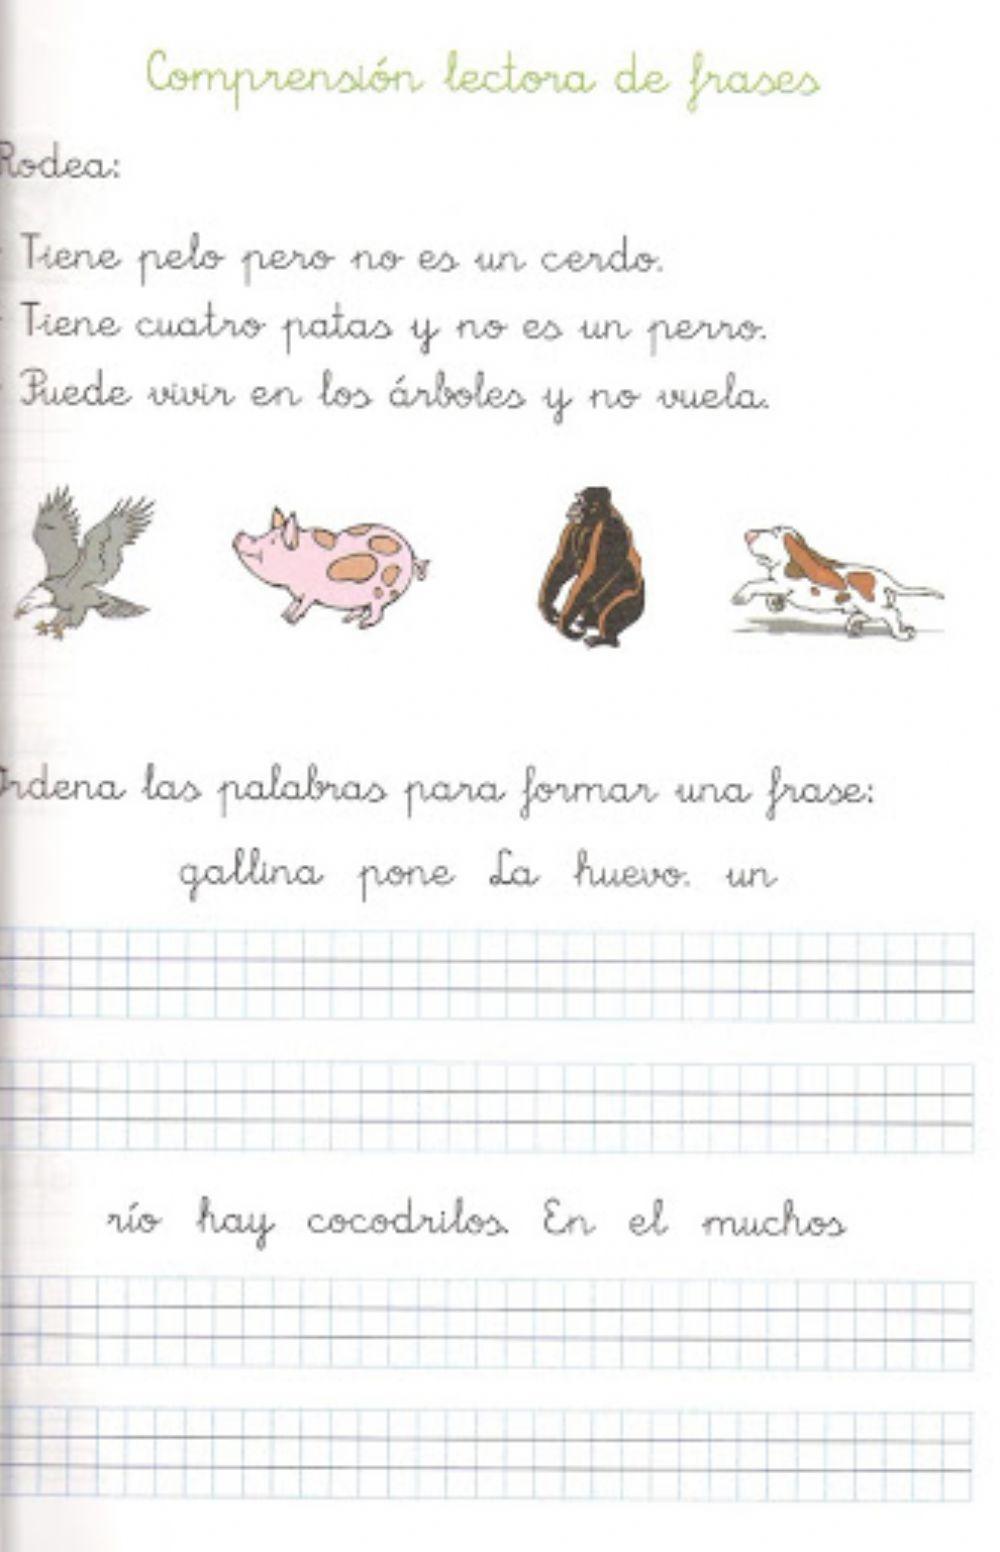 Comprensión lectora de frases
Rodea:
Tiene pelo pero no es un cerdo.
Tiene cuatro patas y no es un perro.
Puede vivir en los árboles y no vuela.
Ordena las palabras para formar una frase:
gallina pone La huevo. un
río hay cocodrilos. En el muchos